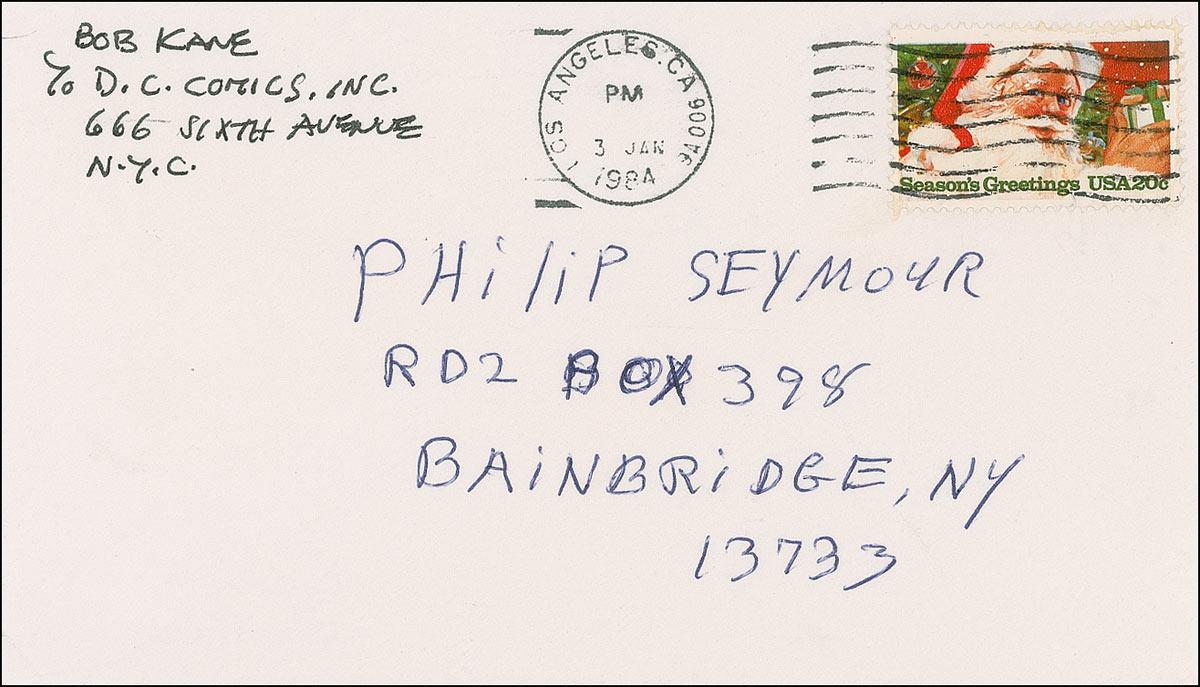 BOB KANE
c/o D.C. COMICS, INC.
666 SIXTH AVENUE
N.Y.C.
LOS ANGELES, CA 900
PM
3 JAN
1984
Season's Greetings USA20c
PHiliP SEYMOUR
RD2 BOX 398
BAiNBRiDGE, NY
13733